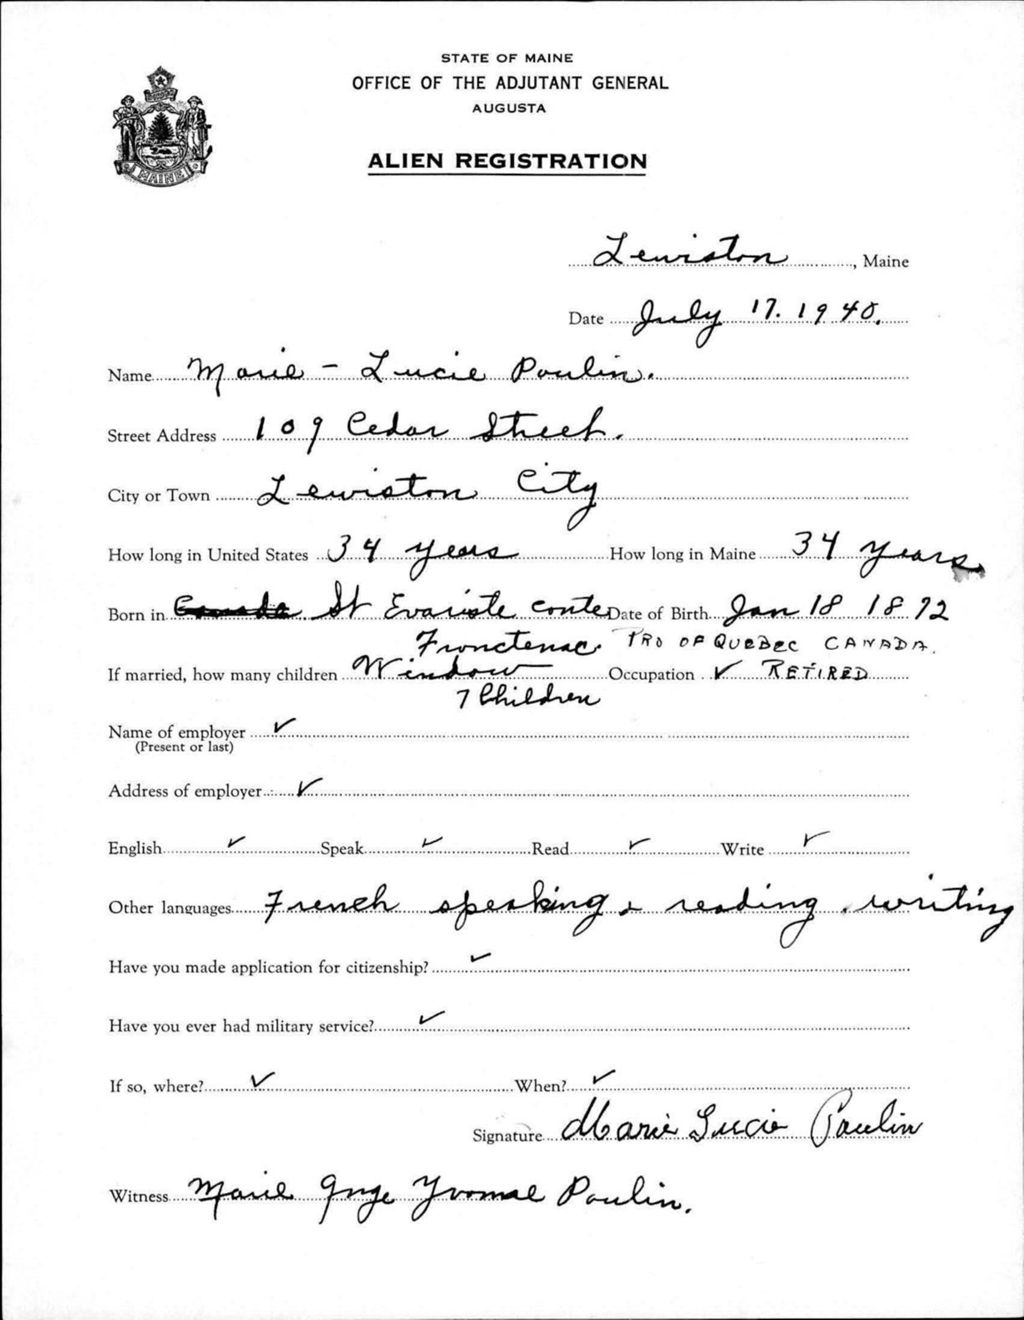 STATE OF MAINE
OFFICE OF THE ADJUTANT GENERAL
AUGUSTA
ALIEN REGISTRATION
MAINE
Lewiston, Maine
Date July 17. 1940.
Name Marie - Lucie Poulin.
Street Address 109 Cedar Street.
City or Town Lewiston City
How long in United States 34 years How long in Maine 34 years
Born in Canada St Evariste conte Date of Birth Jan 18 1872
Fronctenac. PRO OF QUEBEC CANADA.
If married, how many children Window Occupation ✓ RETIRED
7 Children
Name of employer ✓
(Present or last)
Address of employer ✓
English ✓ Speak ✓ Read ✓ Write ✓
Other languages French speaking & reading. writing
Have you made application for citizenship? ✓
Have you ever had military service? ✓
If so, where? ✓ When? ✓
Signature Marie Lucie Poulin
Witness Marie Ange Yvonne Poulin.